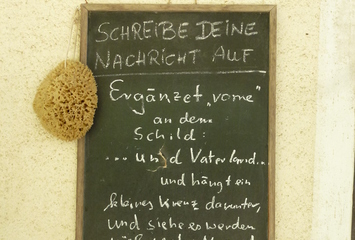 SCHREIBE DEINE
NACHRICHT AUF
Ergänzet „vorne"
an dem
Schild:
... und Vaterland...
und hängt ein
kleines Kreuz darunter,
und siehe es werden